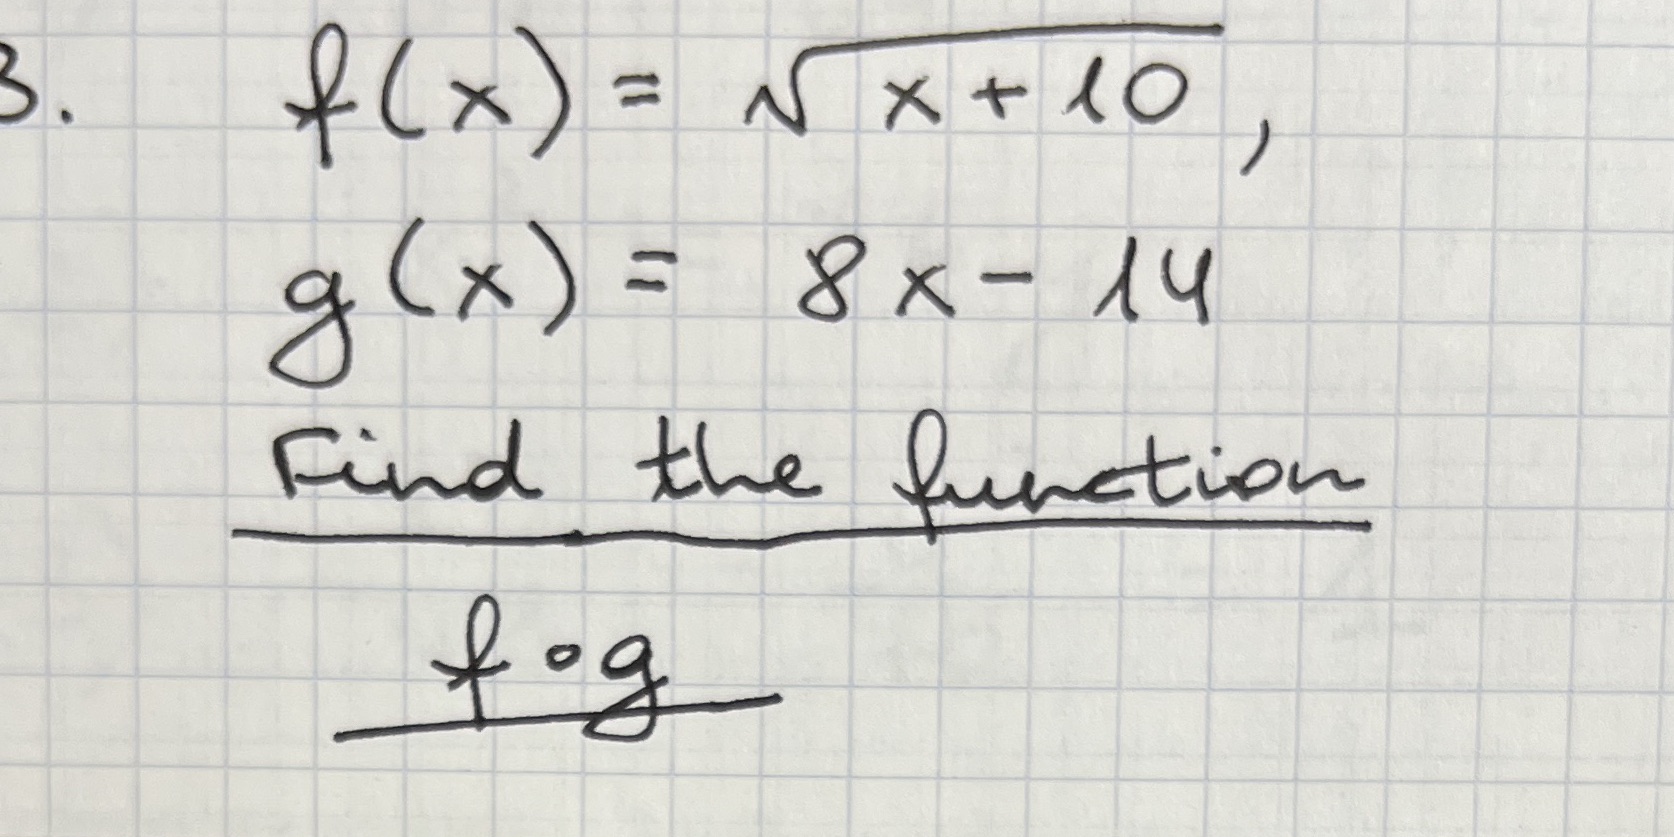 3. f(x) = √(x + 10),
g(x) = 8x - 14
Find the function
f∘g